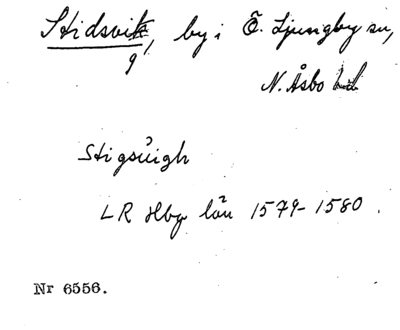 Stidsvik, by i Ö. Ljungby sn,
g
N. Åsbo hd
Stigsůigh
LR Hbg län 1579-1580.
Nr 6556.